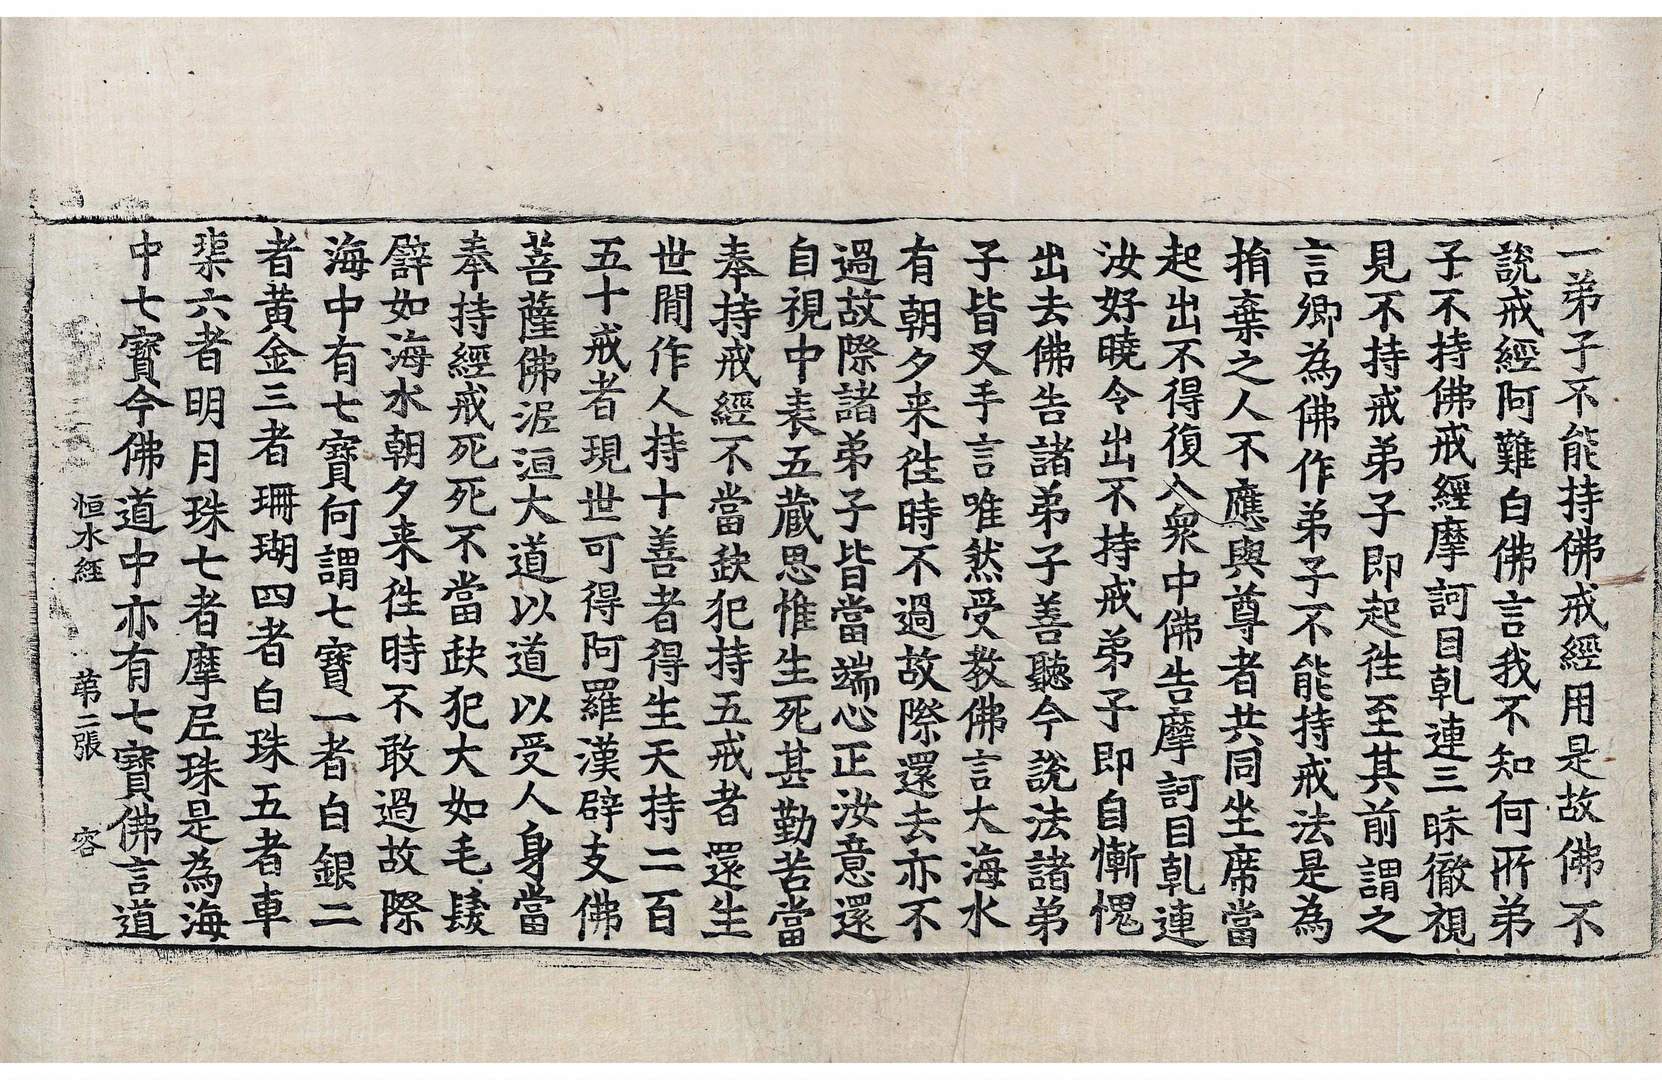 一弟子不能持佛戒經用是故佛不
說戒經阿難白佛言我不知何所弟
子不持佛戒經摩訶目乹連三昧徹視
見不持戒弟子即起往至其前謂之
言卿為佛作弟子不能持戒法是為
捐棄之人不應與尊者共同坐席當
起出不得復入眾中佛告摩訶目乹連
汝好曉令出不持戒弟子即自慚愧
出去佛告諸弟子善聽今說法諸弟
子皆叉手言唯然受教佛言大海水
有朝夕来往時不過故際還去亦不
過故際諸弟子皆當端心正汝意還
自視中表五藏思惟生死甚勤苦當
奉持戒經不當缺犯持五戒者還生
世間作人持十善者得生天持二百
五十戒者現世可得阿羅漢辟支佛
菩薩佛泥洹大道以道以受人身當
奉持經戒死死不當缺犯大如毛髮
譬如海水朝夕来往時不敢過故際
海中有七寶何謂七寶一者白銀二
者黃金三者珊瑚四者白珠五者車
𤦲六者明月珠七者摩尼珠是為海
中七寶今佛道中亦有七寶佛言道
恒水經 第二張 容